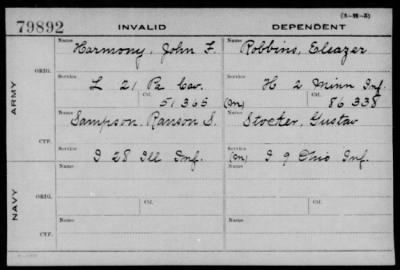 (3-92-3)
79892 INVALID DEPENDENT
ARMY
ORIG.
Name Harmony, John F.
Name Robbins, Eleazer
Service L 21 Pa Cav.
Service H 2 Minn Inf.
Ctf. 51365
(m) Ctf. 86338
CTF.
Name Sampson, Ranson S.
Name Stocker, Gustav
Service I 28 Ill Inf.
Service (m) I 9 Ohio Inf.
NAVY
ORIG.
Name
Name
Service Ctf.
Service Ctf.
CTF.
Name
Name
Service
Service